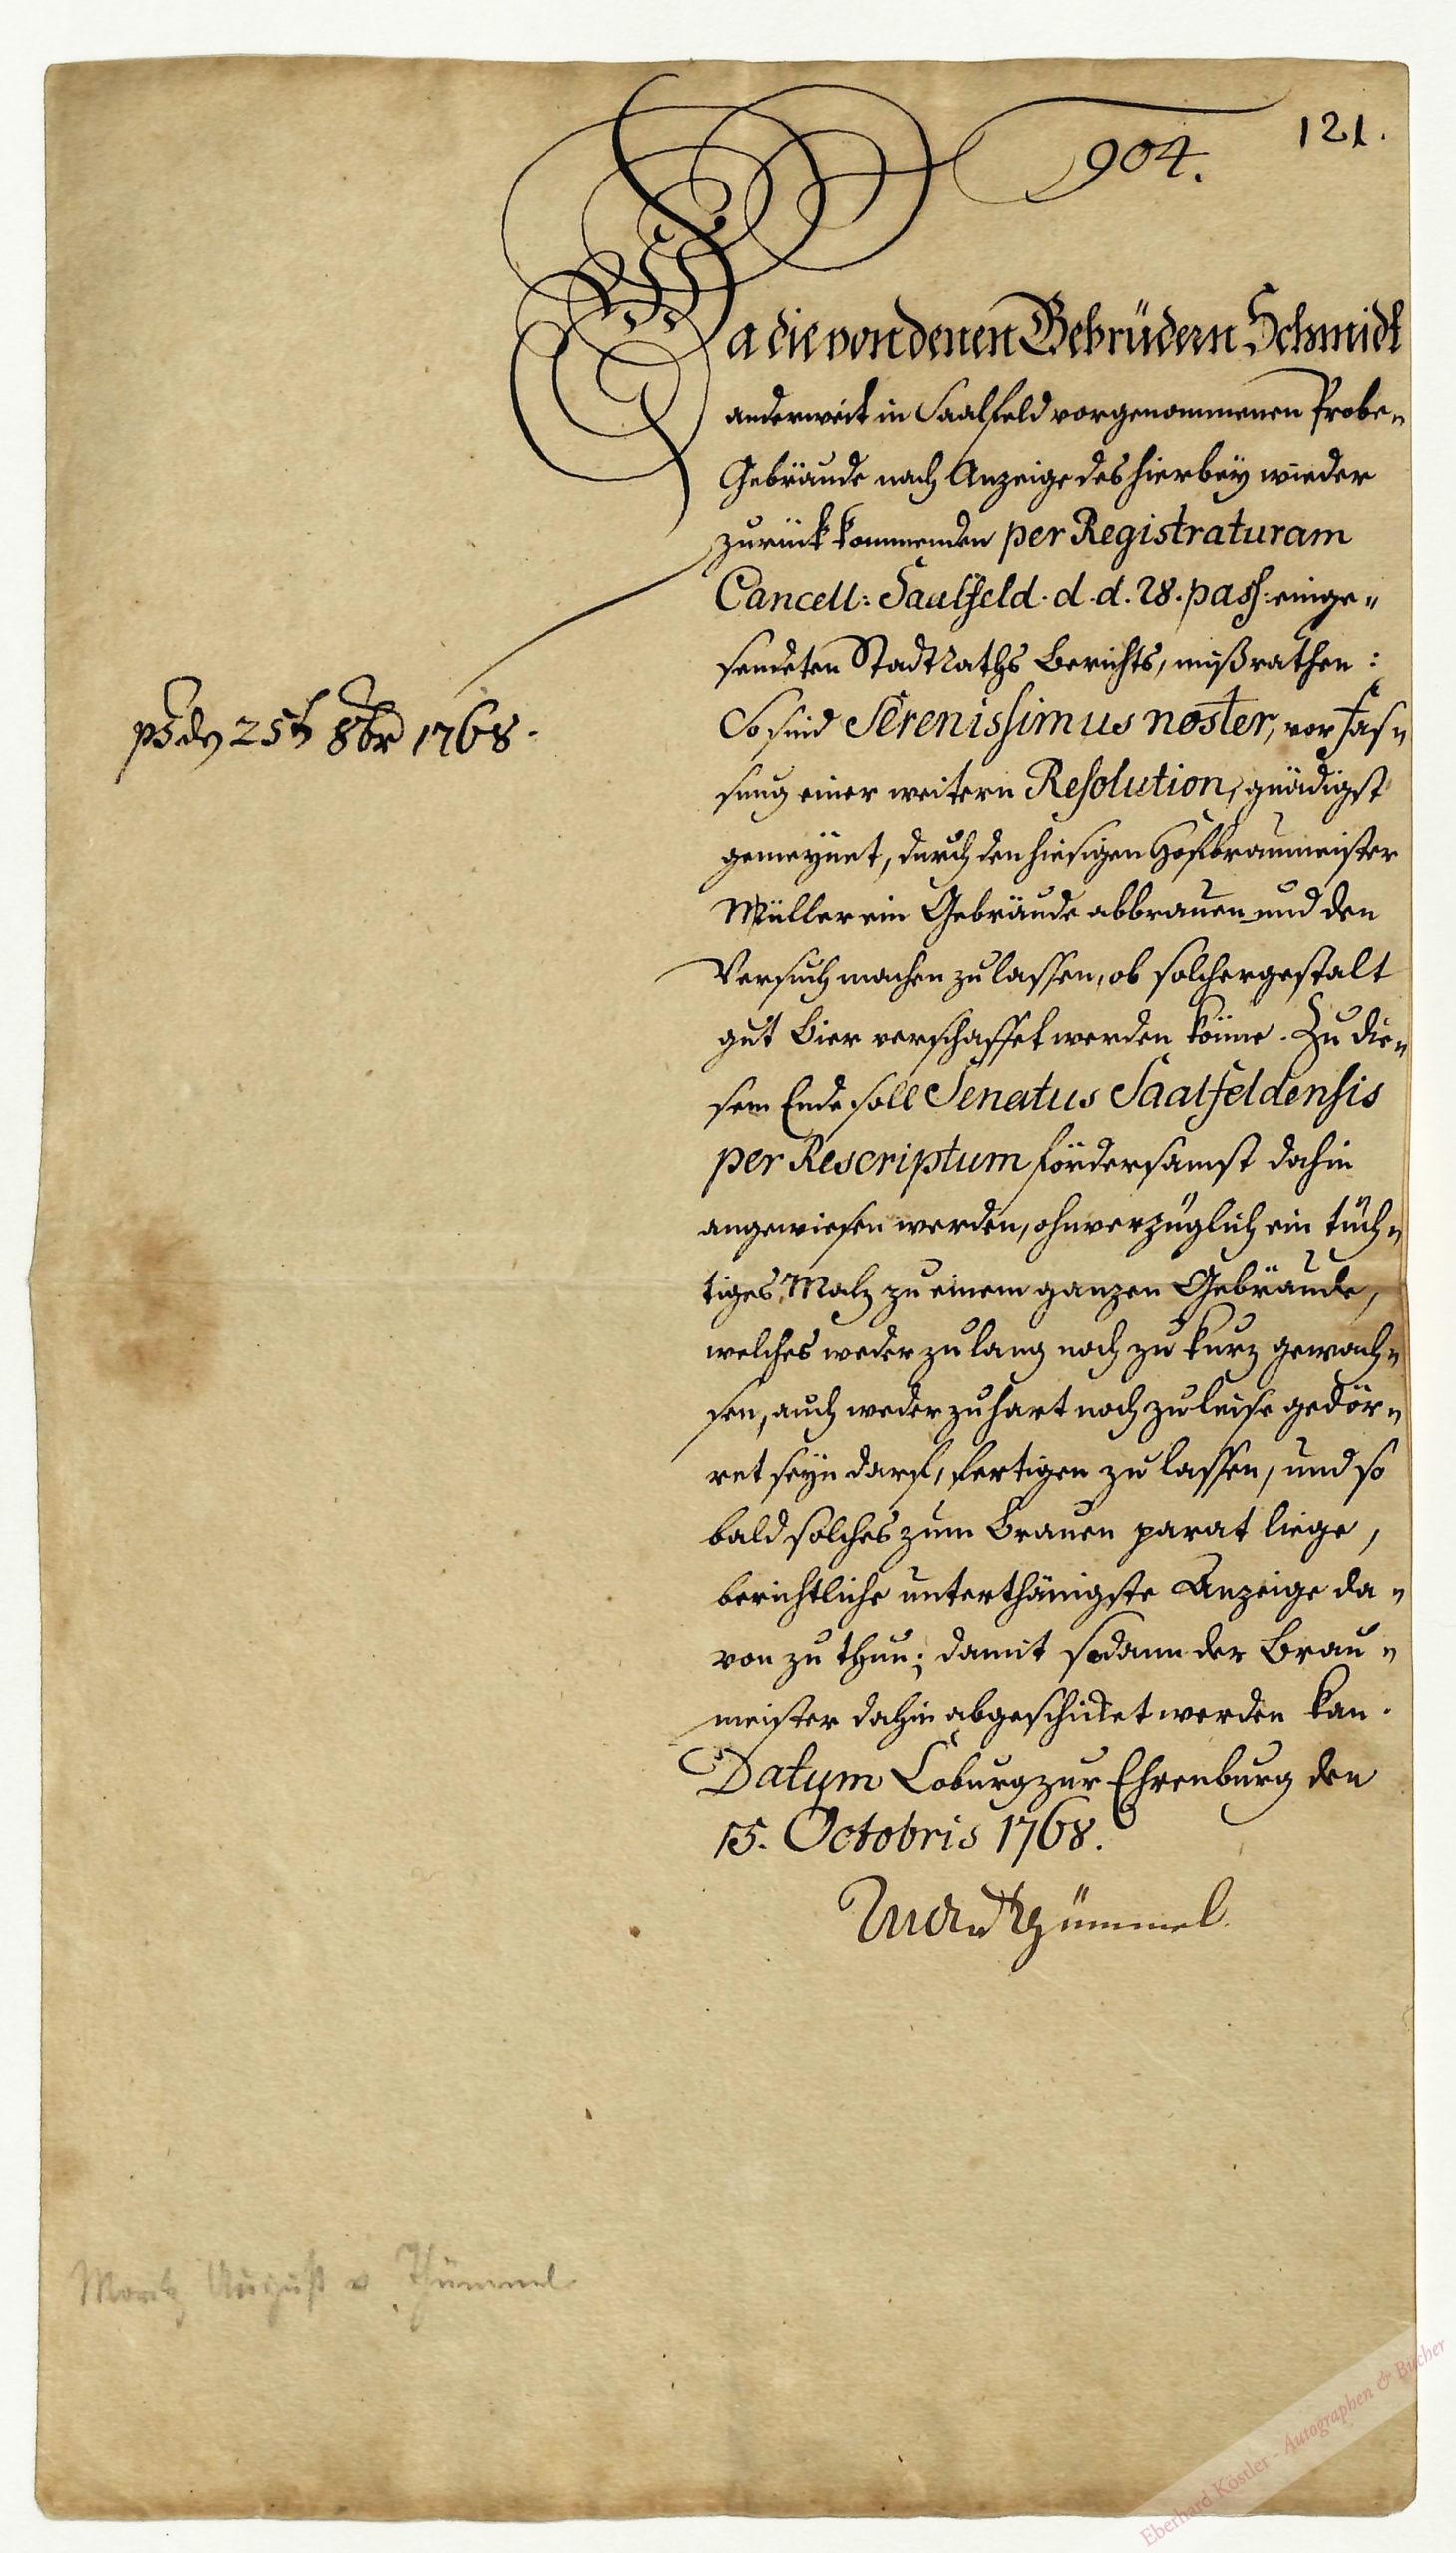 121.
904.
Da die von denen Gebrüdern Schmidt
anderweit in Saalfeld vorgenommenen Probe„
Gebräude nach Anzeige des hierbey wieder
zurück kommenden per Registraturam
Cancell: Saalfeld. d. d. 28. pass: einge„
sendeten Stadtraths Berichts, mißrathen:
So sind Serenissimus noster, vor Fas„
sung einer weitern Resolution, gnädigst
gemeynet, durch den hiesigen Hofbraumeister
Müller ein Gebräude abbrauen und den
Versuch machen zu lassen, ob solchergestalt
gut Bier verschaffet werden könne. Zu die„
sem Ende soll Senatus Saalfeldensis
per Rescriptum fördersamst dahin
angewiesen werden, ohnverzüglich ein tüch„
tiges Malz zu einem ganzen Gebräude,
welches weder zu lang noch zu kurz gewach„
sen, auch weder zu hart noch zu leise gedör„
ret seyn darf, fertigen zu lassen, und so
bald solches zum Brauen parat liege,
berichtliche unterthänigste Anzeige da„
von zu thun; damit sodann der Brau„
meister dahin abgeschicket werden kan.
Datum Coburg zur Ehrenburg den
15. Octobris 1768.
Thümmel
25t 8br 1768.
Moritz August v Thümmel
Eberhard Köstler - Autographen & Bücher